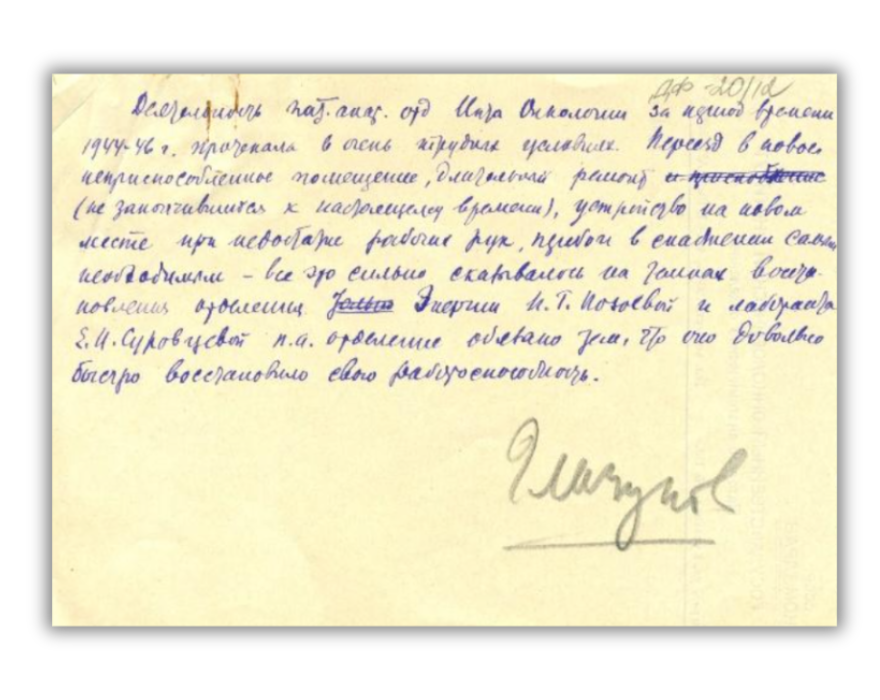 ДФ-20/12
Деятельность пат.анат. отд Инта Онкологии за период времени
1944-46 г. протекала в очень трудных условиях. Переезд в новое
неприспособленное помещение, длительный ремонт
(не закончившийся к настоящему времени), устройство на новом
месте при недостатке рабочих рук, перебои в снабжении самым
необходимым – все это сильно сказывалось на темпах восста-
новления отделения Энергии И.Т. и лаборанта
Е.И. Суровцевой п.а. отделение обязано тем, что оно довольно
быстро восстановило свою работоспособность.
Глазунов